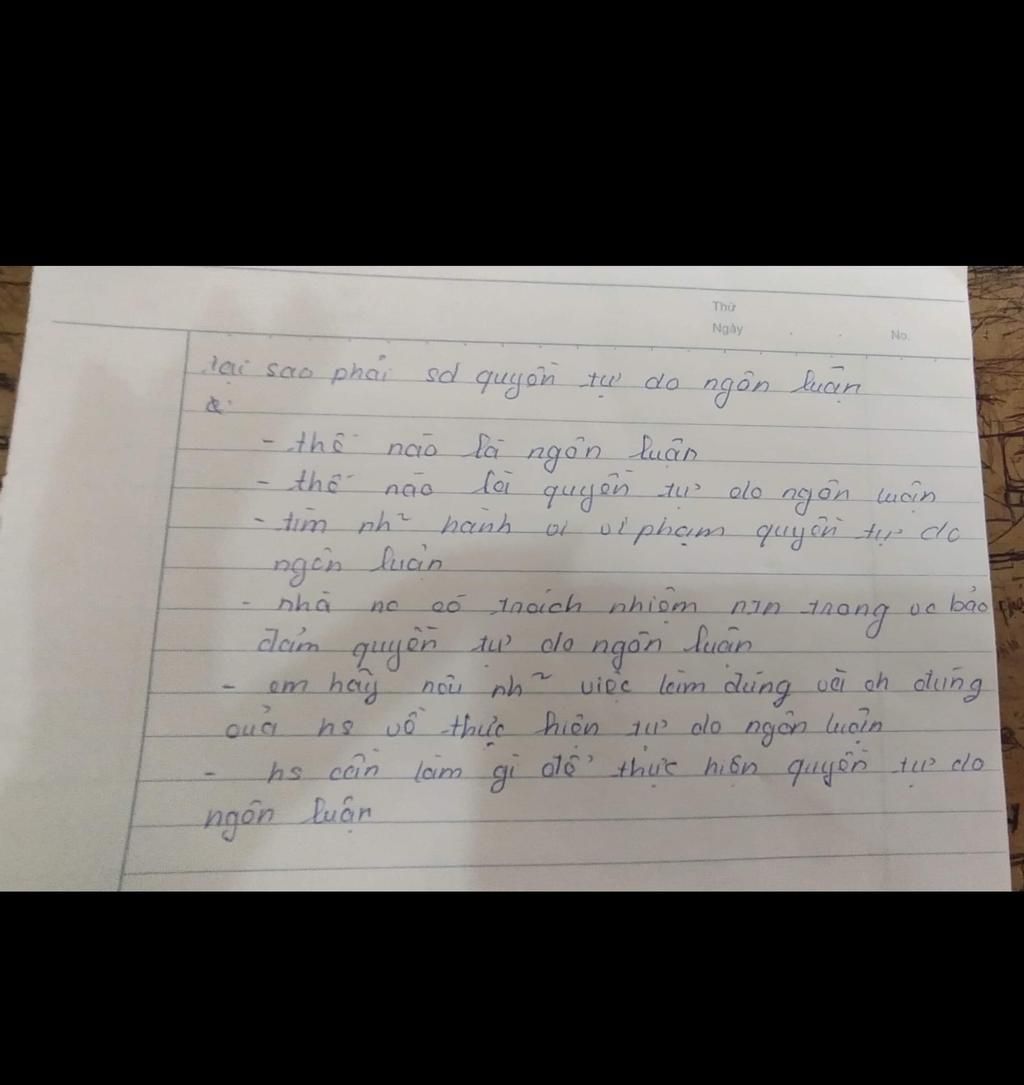 Thứ
Ngày
No.
tại sao phải sd quyền tự do ngôn luận
- thế nào là ngôn luận
- thế nào là quyền tự do ngôn luận
- tìm nh² hành vi vi phạm quyền tự do
ngôn luận
- nhà nc có trách nhiệm ntn trong vc bảo
đảm quyền tự do ngôn luận
- em hãy nêu nh² việc làm đúng và ch đúng
của hs về thực hiện tự do ngôn luận
- hs cần làm gì để thực hiện quyền tự do
ngôn luận